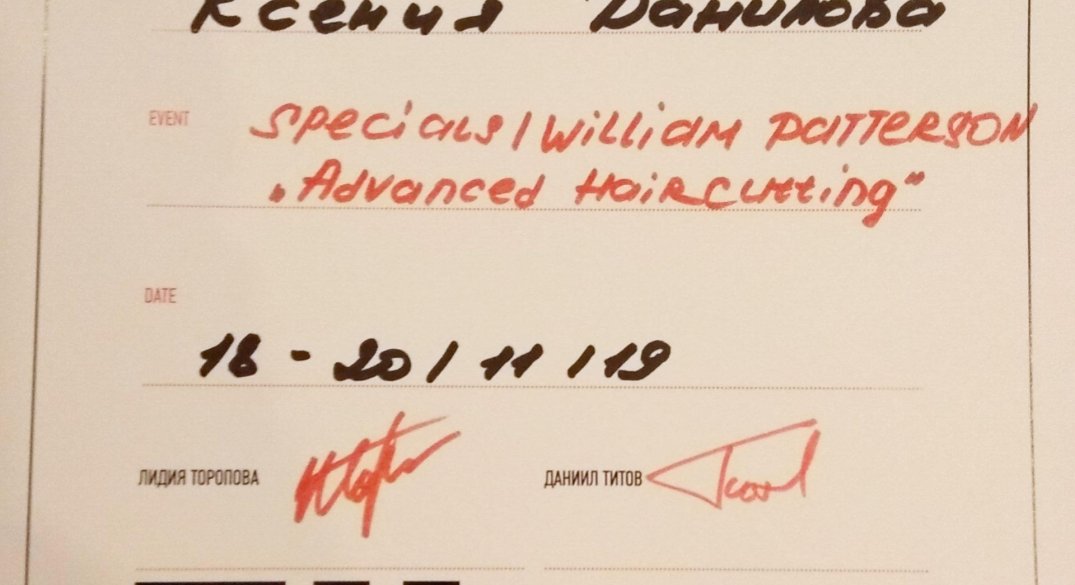 Ксения Данилова
EVENT
Specials / William Patterson
„Advanced Haircutting"
DATE
18 - 20 / 11 / 19
ЛИДИЯ ТОРОПОВА
ДАНИИЛ ТИТОВ